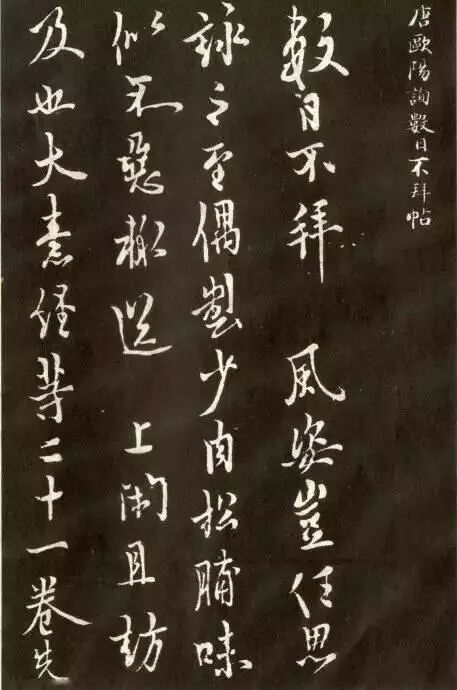 唐歐陽詢數日不拜帖
數日不拜 風姿豈任思
詠之至偶製少肉松脯味
似不惡輒送 上闲且訪
及也大素經等二十一卷先